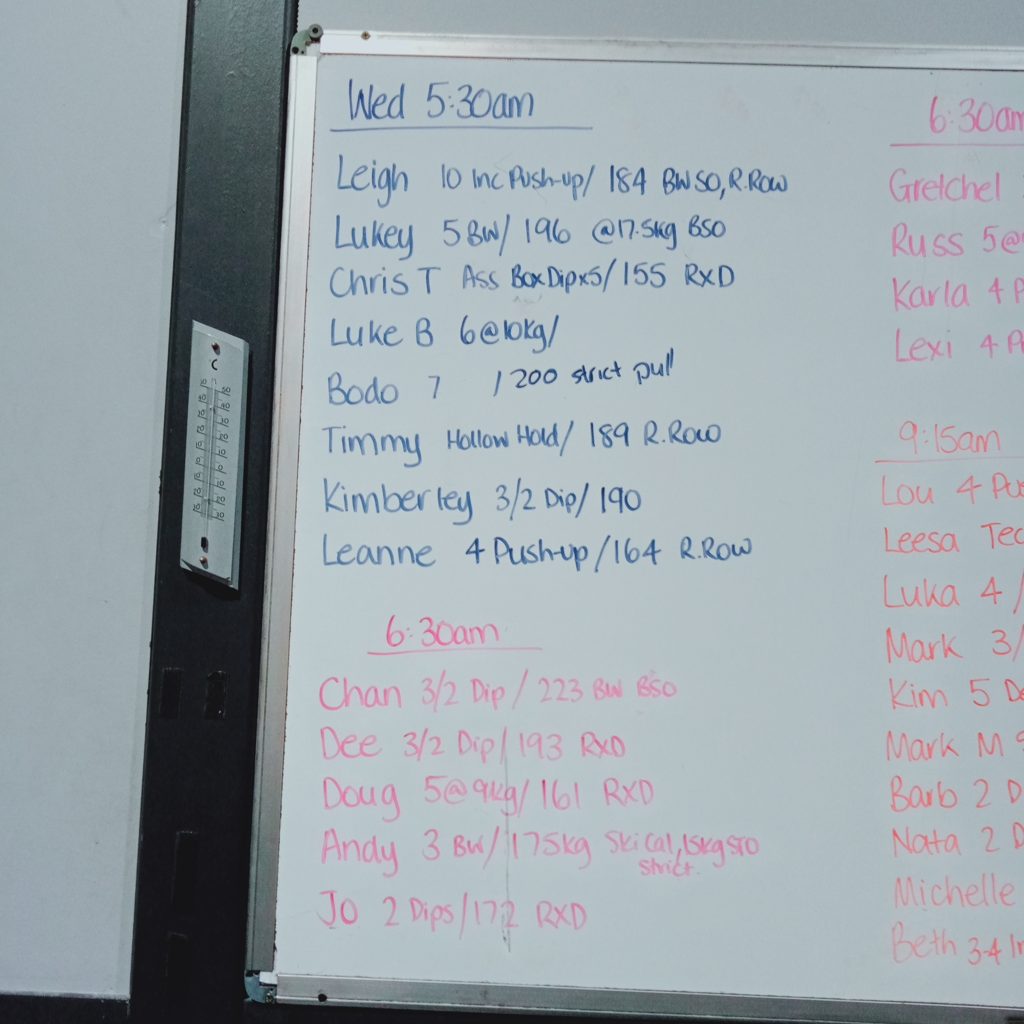 Wed 5:30am
Leigh 10 Inc Push-up/ 184 BWSO, R.Row
Lukey 5 BW/ 196 @17.5kg BSO
Chris T Ass Box Dipx5/ 155 RxD
Luke B 6@10kg/
Bodo 7 / 200 strict pull
Timmy Hollow Hold/ 189 R.Row
Kimberley 3/2 Dip/ 190
Leanne 4 Push-up/164 R.Row
6:30am
Chan 3/2 Dip / 223 BW BSO
Dee 3/2 Dip/ 193 RXD
Doug 5@9kg/ 161 RXD
Andy 3 BW/ 175kg Ski Cal, 15kg STO
strict.
Jo 2 Dips/172 RXD
6:30am
Gretchel
Russ 5@
Karla 4 P
Lexi 4 P
9:15am
Lou 4 Pus
Leesa Tec
Luka 4 /
Mark 3/
Kim 5 De
Mark M
Barb 2 D
Nata 2 D
Michelle
Beth 3-4 In